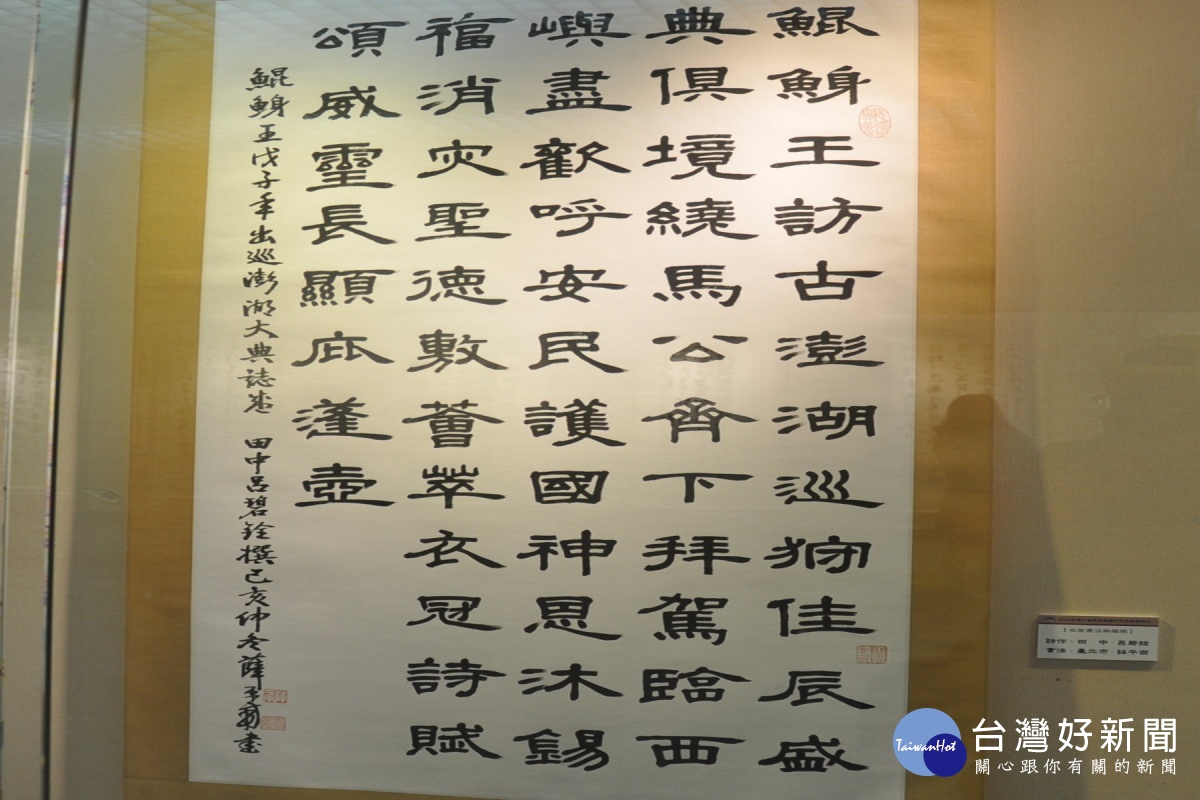 鯤鯓王訪古澎湖巡狩佳辰盛
典俱境繞馬公齊下拜駕臨西
嶼盡歡呼安民護國神恩沐錫
福消灾聖德敷薈萃衣冠詩賦
頌威靈長顯庇蓬壺
鯤鯓王戊子年出巡澎湖大典誌盛 田中呂碧銓撰己亥仲冬薛平南書
【名家書法典藏展】
詩作：田 中．呂碧銓
書法：臺北市．薛平南
TaiwanHot
台灣好新聞
關心跟你有關的新聞